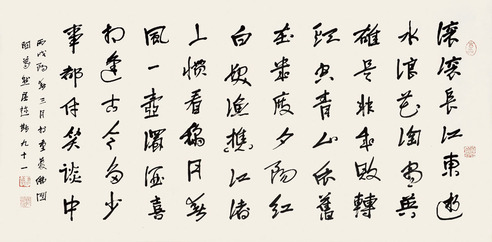 滚滚長江東逝
水浪花淘盡英
雄是非成敗轉
頭空青山依舊
在幾度夕陽紅
白髮漁樵江渚
上慣看穐月春
風一壺濁酒喜
相逢古今多少
事都付笑談中
丙戌陽春三月於
九十一